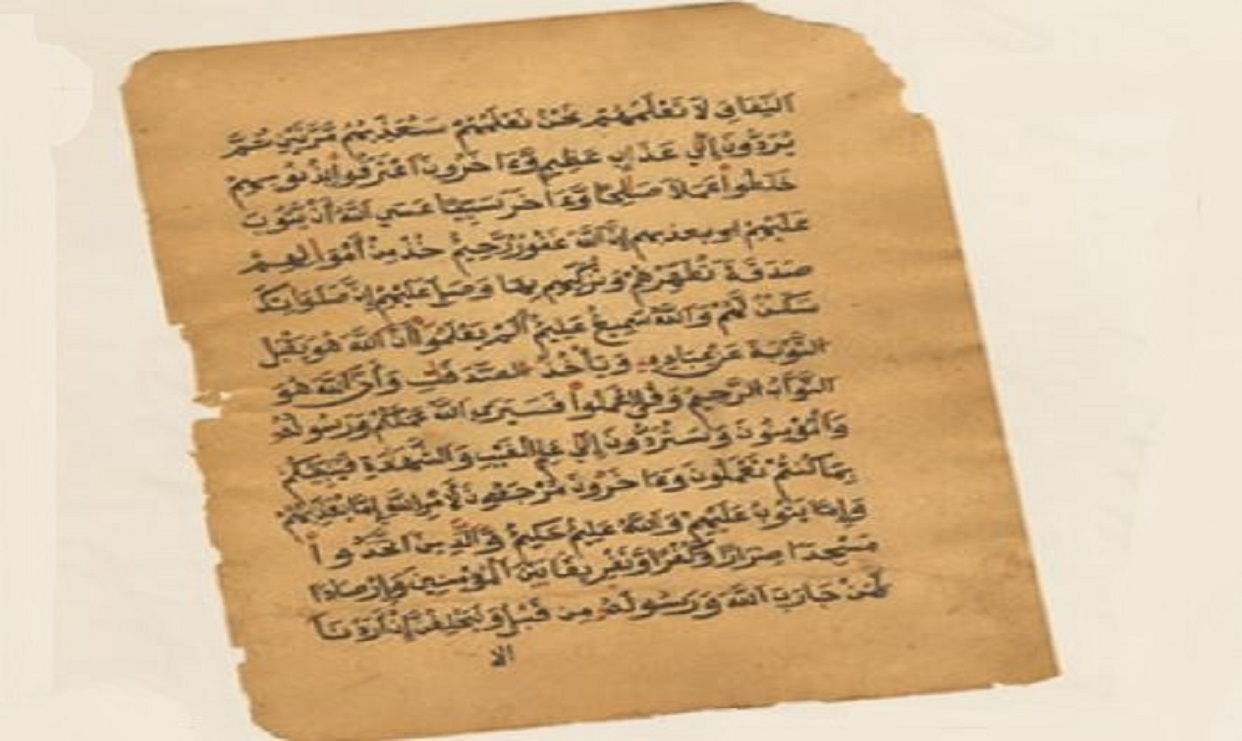 النِّفَاقِ لَا تَعْلَمُهُمْ نَحْنُ نَعْلَمُهُمْ سَنُعَذِّبُهُمْ مَّرَّتَيْنِ ثُمَّ
يُرَدُّونَ إِلَىٰ عَذَابٍ عَظِيمٍ وَءَاخَرُونَ اعْتَرَفُوا بِذُنُوبِهِمْ
خَلَطُوا عَمَلًا صَالِحًا وَءَاخَرَ سَيِّئًا عَسَى اللَّهُ أَنْ يَتُوبَ
عَلَيْهِمْ او يعذبهم إِنَّ اللَّهَ غَفُورٌ رَّحِيمٌ خُذْ مِنْ أَمْوَالِهِمْ
صَدَقَةً تُطَهِّرُهُمْ وَتُزَكِّيهِم بِهَا وَصَلِّ عَلَيْهِمْ إِنَّ صَلَوٰتَكَ
سَكَنٌ لَّهُمْ وَاللَّهُ سَمِيعٌ عَلِيمٌ أَلَمْ يَعْلَمُوا أَنَّ اللَّهَ هُوَ يَقْبَلُ
التَّوْبَةَ عَنْ عِبَادِهِ وَيَأْخُذُ الصَّدَقَٰتِ وَأَنَّ اللَّهَ هُوَ
التَّوَّابُ الرَّحِيمُ وَقُلِ اعْمَلُوا فَسَيَرَى اللَّهُ عَمَلَكُمْ وَرَسُولُهُ
وَالْمُؤْمِنُونَ وَسَتُرَدُّونَ إِلَىٰ عَٰلِمِ الْغَيْبِ وَالشَّهَٰدَةِ فَيُنَبِّئُكُم
بِمَا كُنتُمْ تَعْمَلُونَ وَءَاخَرُونَ مُرْجَوْنَ لِأَمْرِ اللَّهِ إِمَّا يُعَذِّبُهُمْ
وَإِمَّا يَتُوبُ عَلَيْهِمْ وَاللَّهُ عَلِيمٌ حَكِيمٌ وَالَّذِينَ اتَّخَذُوا
مَسْجِدًا ضِرَارًا وَكُفْرًا وَتَفْرِيقًا بَيْنَ الْمُؤْمِنِينَ وَإِرْصَادًا
لِّمَنْ حَارَبَ اللَّهَ وَرَسُولَهُ مِن قَبْلُ وَلَيَحْلِفُنَّ إِنْ أَرَدْنَا
الا